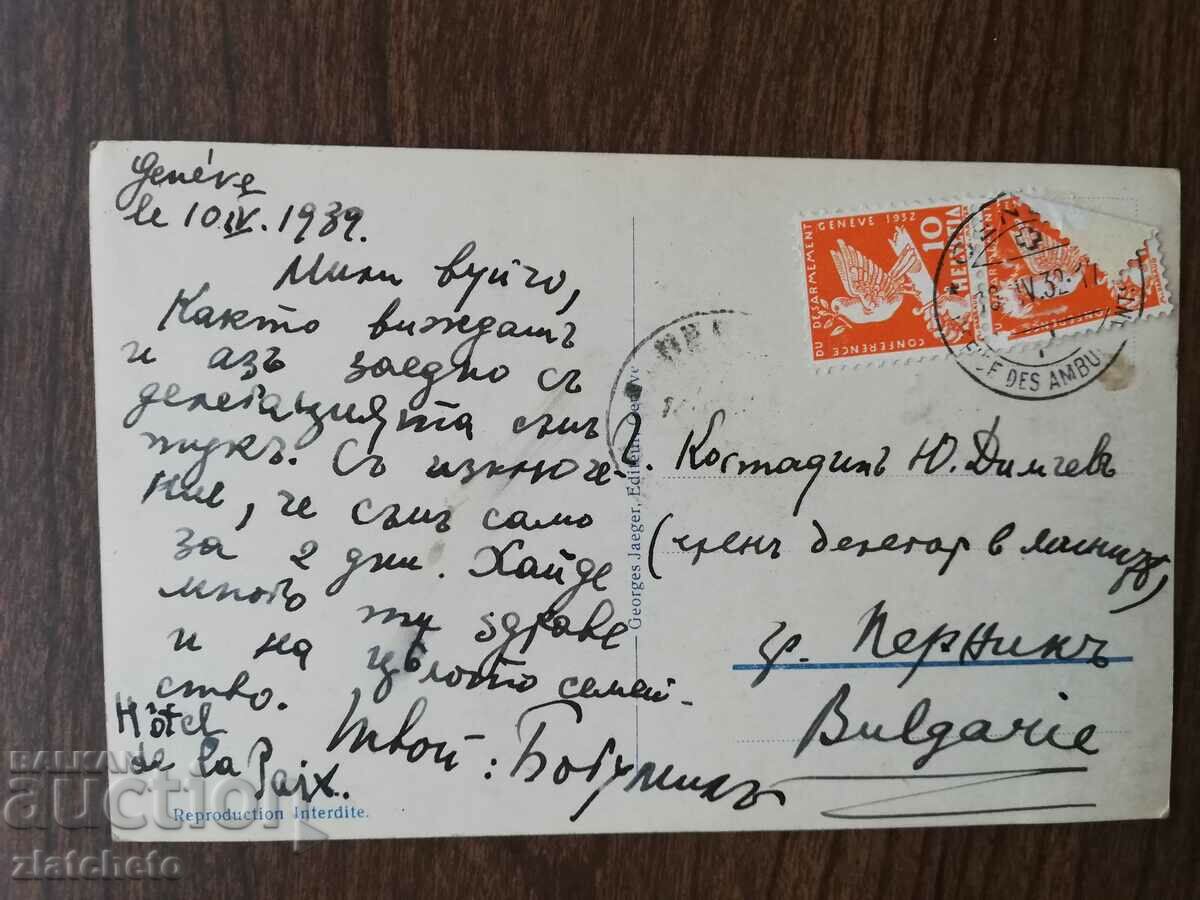 Genève
le 10 IV. 1932.
Мили вуйчо,
Както виждашъ
и азъ заедно съ
делегацията съмъ
тукъ. Съ изключе-
ние, че съмъ само
за 2 дни. Хайде
много ти здраве
и на цѣлото семей-
ство.
Твой:
Hôtel
de la Paix.
Reproduction Interdite.
Georges Jaeger, Editeur, Genève
CONFERENCE DU DESARMEMENT GENÈVE 1932
10
HELVETIA
IV.32.17
DES AMBU
Г. Костадинъ Ю. Димчевъ
(членъ делегар в
гр. Перникъ
Bulgarie
BALKAN
auction
zlatcheto